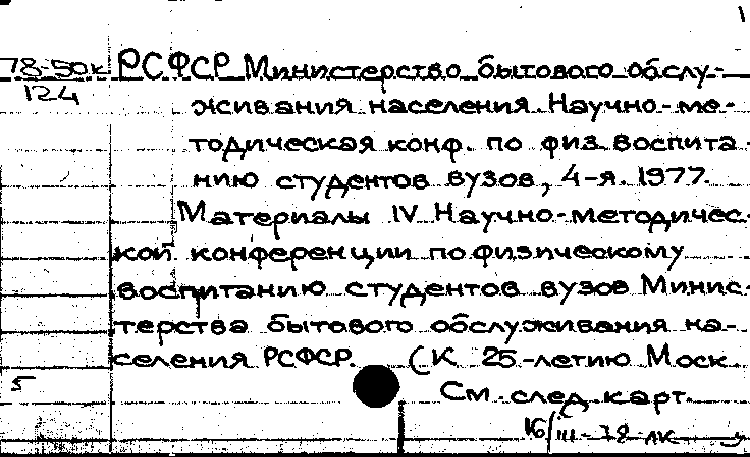 1
78-50к РСФСР Министерство бытового обслу-
124
живания населения. Научно-ме-
тодическая конф. по физ. воспита-
нию студентов вузов, 4-я. 1977.
Материалы IV Научно-методичес-
кой конференции по физическому
воспитанию студентов вузов Минис-
терства бытового обслуживания на-
селения РСФСР. (К 25-летию Моск.
5
См. след. карт.
16/III-78 лк